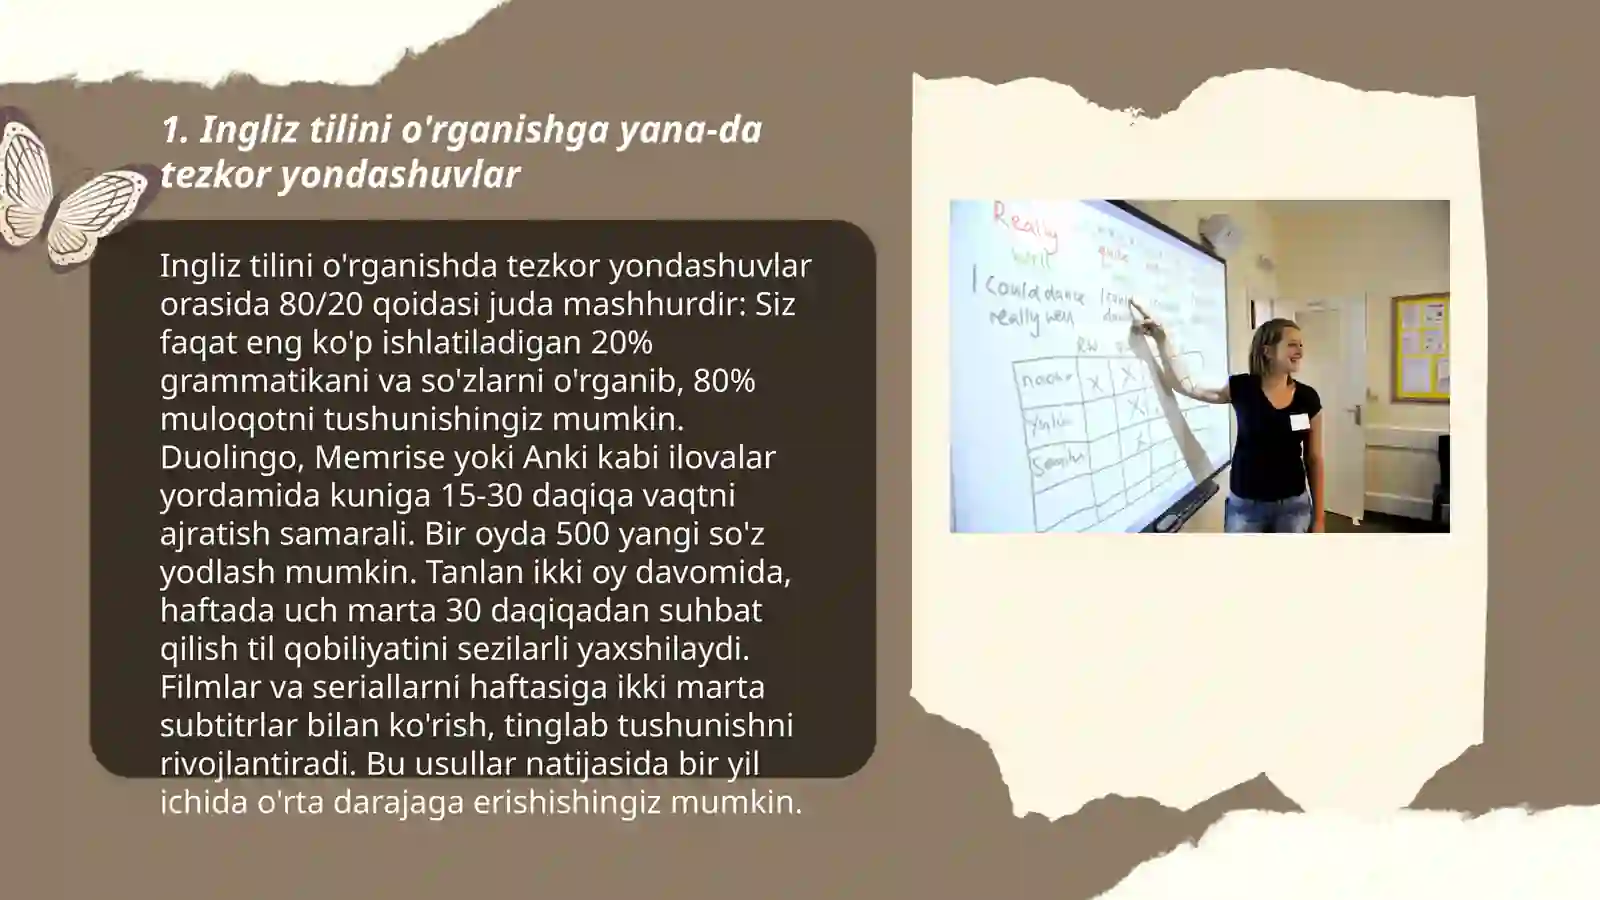 1. Ingliz tilini o'rganishga yana-da
tezkor yondashuvlar
Ingliz tilini o'rganishda tezkor yondashuvlar
orasida 80/20 qoidasi juda mashhurdir: Siz
faqat eng ko'p ishlatiladigan 20%
grammatikani va so'zlarni o'rganib, 80%
muloqotni tushunishingiz mumkin.
Duolingo, Memrise yoki Anki kabi ilovalar
yordamida kuniga 15-30 daqiqa vaqtni
ajratish samarali. Bir oyda 500 yangi so'z
yodlash mumkin. Tanlan ikki oy davomida,
haftada uch marta 30 daqiqadan suhbat
qilish til qobiliyatini sezilarli yaxshilaydi.
Filmlar va seriallarni haftasiga ikki marta
subtitrlar bilan ko'rish, tinglab tushunishni
rivojlantiradi. Bu usullar natijasida bir yil
ichida o'rta darajaga erishishingiz mumkin.
Really
well
quite
I could dance
really well
RW
X X
X
X